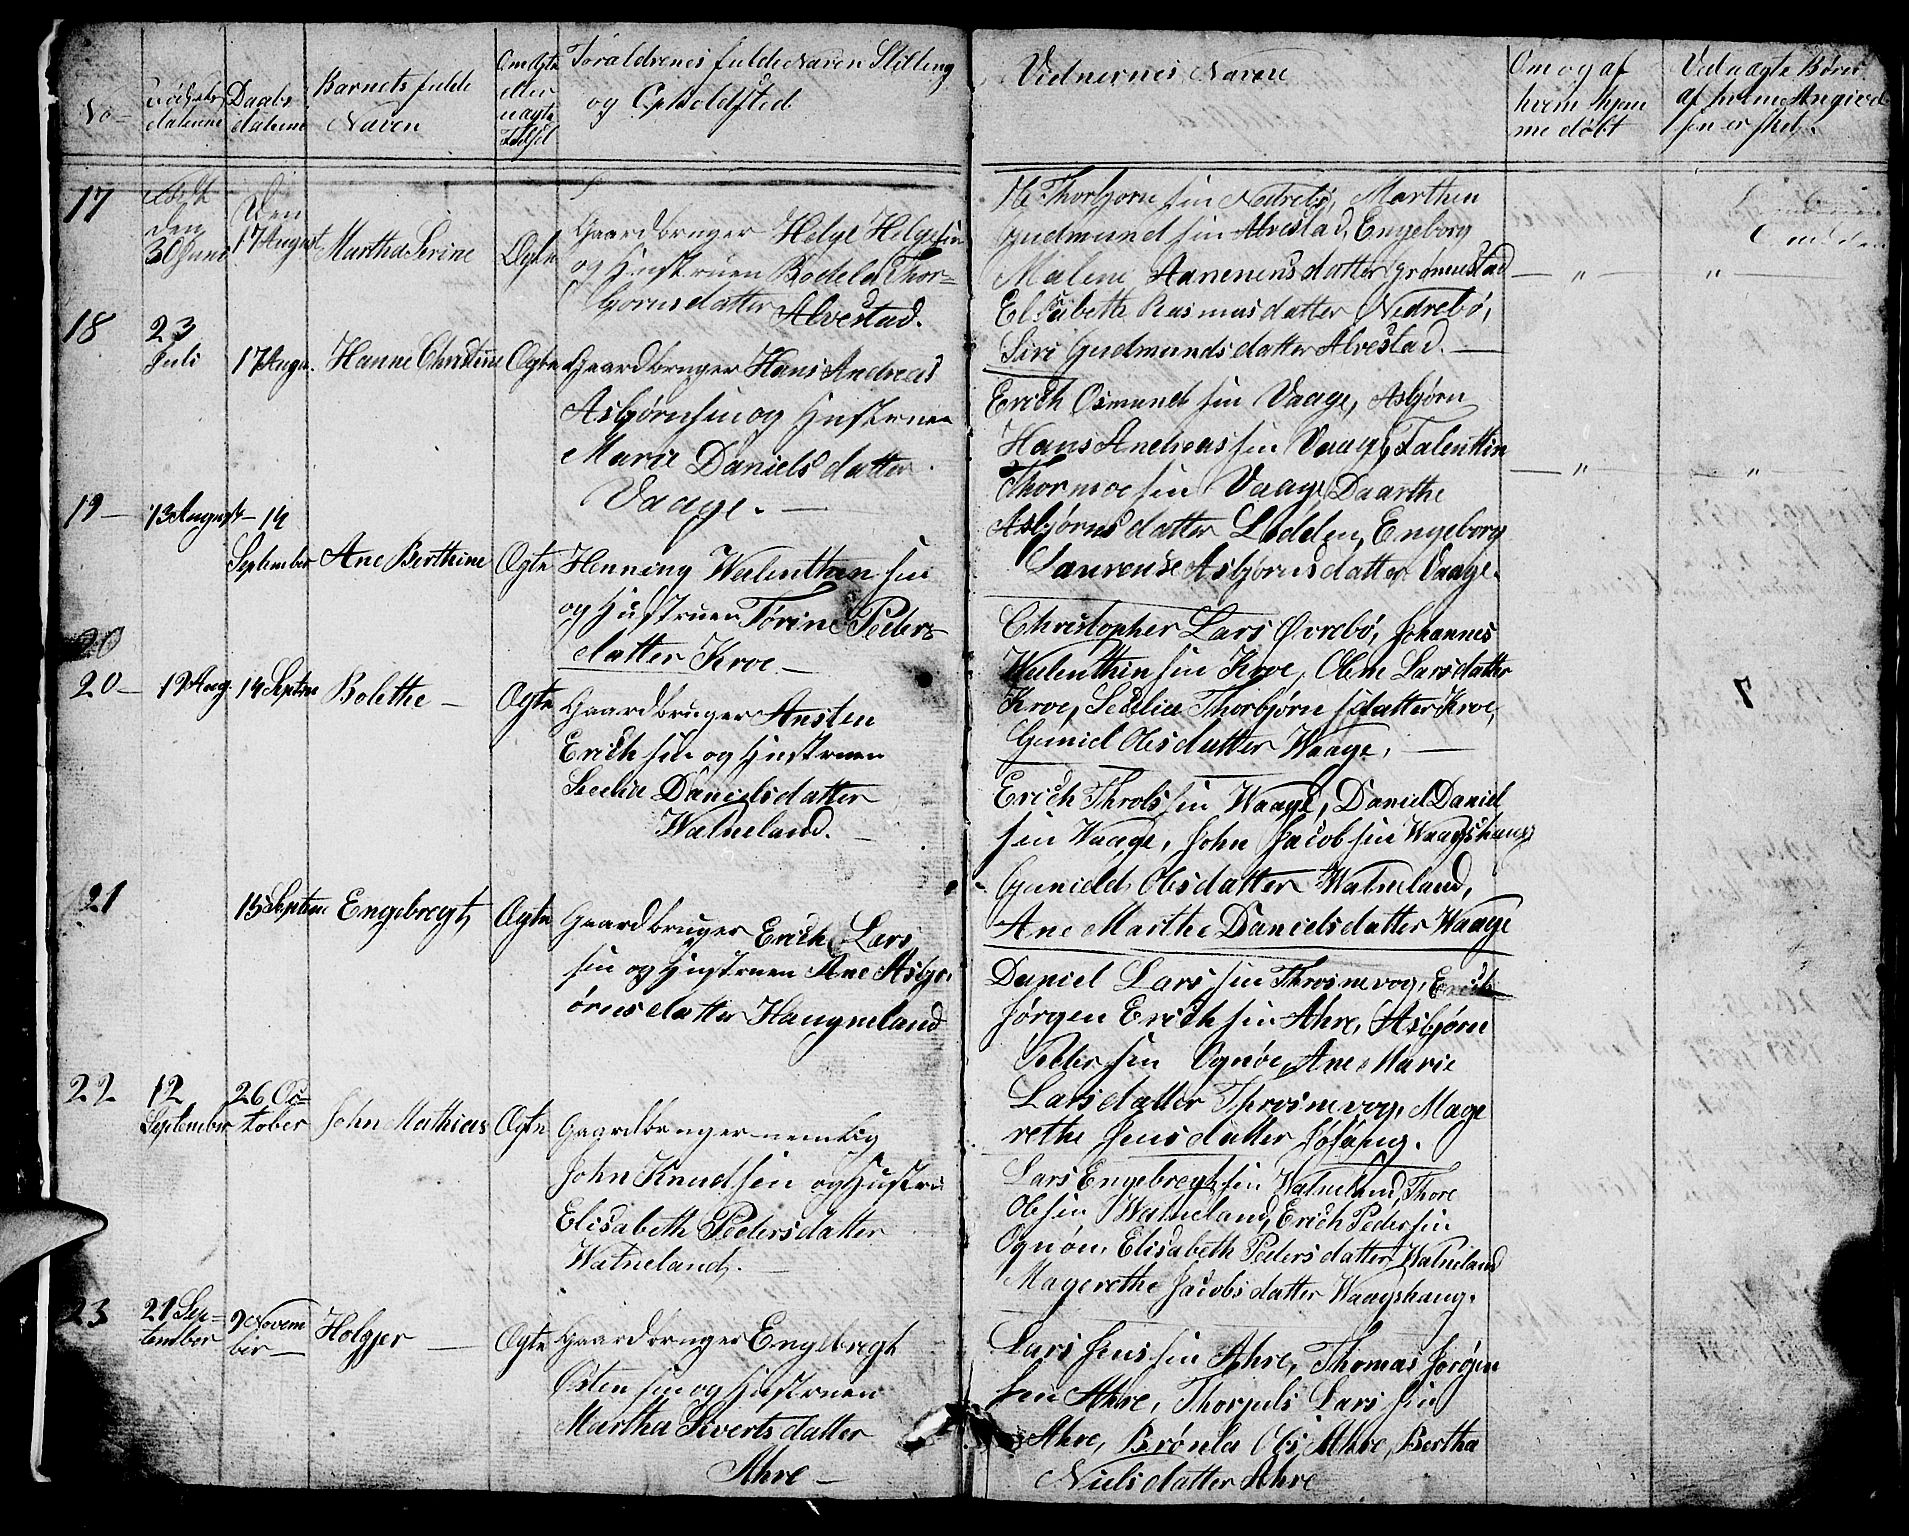 No
Fødsels
datene
Daabs
datene
Barnets fulde
Naven
Om Ægte
eller
uægte
Fødsel
Foraldrenes fulde Naven Stilling
og Opholdsted
Vidnernes Navne
Om og af
hvem hjem
me døbt
Ved uægte Børn
af hvem Angivel
sen er sket.
17
Født
den
30 Juni
Den
17 August
Martha Serine
Ægte
Gaardbruger Helge Helgesen
og Hustruen Bodela Thor-
bjornsdatter Alvestad.
H. Thorbjorn sin Nedrebø, Marthen
Gudmund sin Alvestad, Engeborg
Malene Aanenensdatter Grønnestad
Elisabeth Rasmusdatter Nedrebø,
Siri Gudmundsdatter Alvestad.
— " —
"
18
23
Juli
17 Augu.
Hanne Christine
Ogte
Gaardbruger Hans Andreas
Asbjørnsen og Hustruen
Marie Daniels datter
Vaage. —
Erich Osmund sin Vaage, Asbjørn
Hans Andreas sin Vaage, Falentin
Thormoe sin Vaage, Daarthe
Asbjørnsdatter Lødden, Engeborg
Laurense Asbjørnsdatter Vaage.
— " —
"
19 —
13 August
— 14
September
Ane Berthine
Ogte
Henning Walenthin sin
og Hustruen Tørine Peders
datter Kroe —
Christopher Lars Øvrebø, Johannes
Walenthin sin Kroe, Olene Larsdatter
Kroe, Sedelia Thorbjørn sdatter Kroe,
Guniel Olesdatter Waage, —
20
20 —
19 Aug.
14 Septem
Bolethe —
Ogte
Gaardbruger Ansten
Erich sin og Hustruen
Secelia Danielsdatter
Watneland. —
Erich Throls sin Waage, Daniel Daniel
sin Waage, John Jacob sin Waagshaug
Gunield Olesdatter Watneland,
Ane Marthe Danielsdatter Waage
21
15 Septem
Engebregt
Ogte
Gaardbruger Erich Lars
sin og Hustruen Ane Asbjo
ørnsdatter Haugneland
Daniel Lars sin Throsnevog, Erich
Jørgen Erich sin Ahre, Asbjørn
Peder sin Ognøe, Ane Marie
Larsdatter Throsnevog, Mage
rethe Jensdatter Jøsang.
22
12
September
26 Oc=
tober
John Mathias
Ogte
Gaardbruger nemlig
John Knud sin og Hustru
Elisabeth Pedersdatter
Watneland. —
Lars Engebregt sin Watneland, Thore
Ole sin Watneland, Erich Peder sin
Ognøn, Elisabeth Peders datter Watneland
Magerethe Jacobs datter Waagshaug.
23
21 Sep=
tember
9 Novem
ber —
Holgjer —
Ogte
Gaardbruger Engebregt
Østen sin og Hustruen
Martha Siverts datter
Ahre —
Lars Jens sin Ahre, Thomas Jørgen
sin Ahre, Thorjuls Lars sin
Ahre, Brønla Ols Ahre, Bertha
Niels datter Ahre